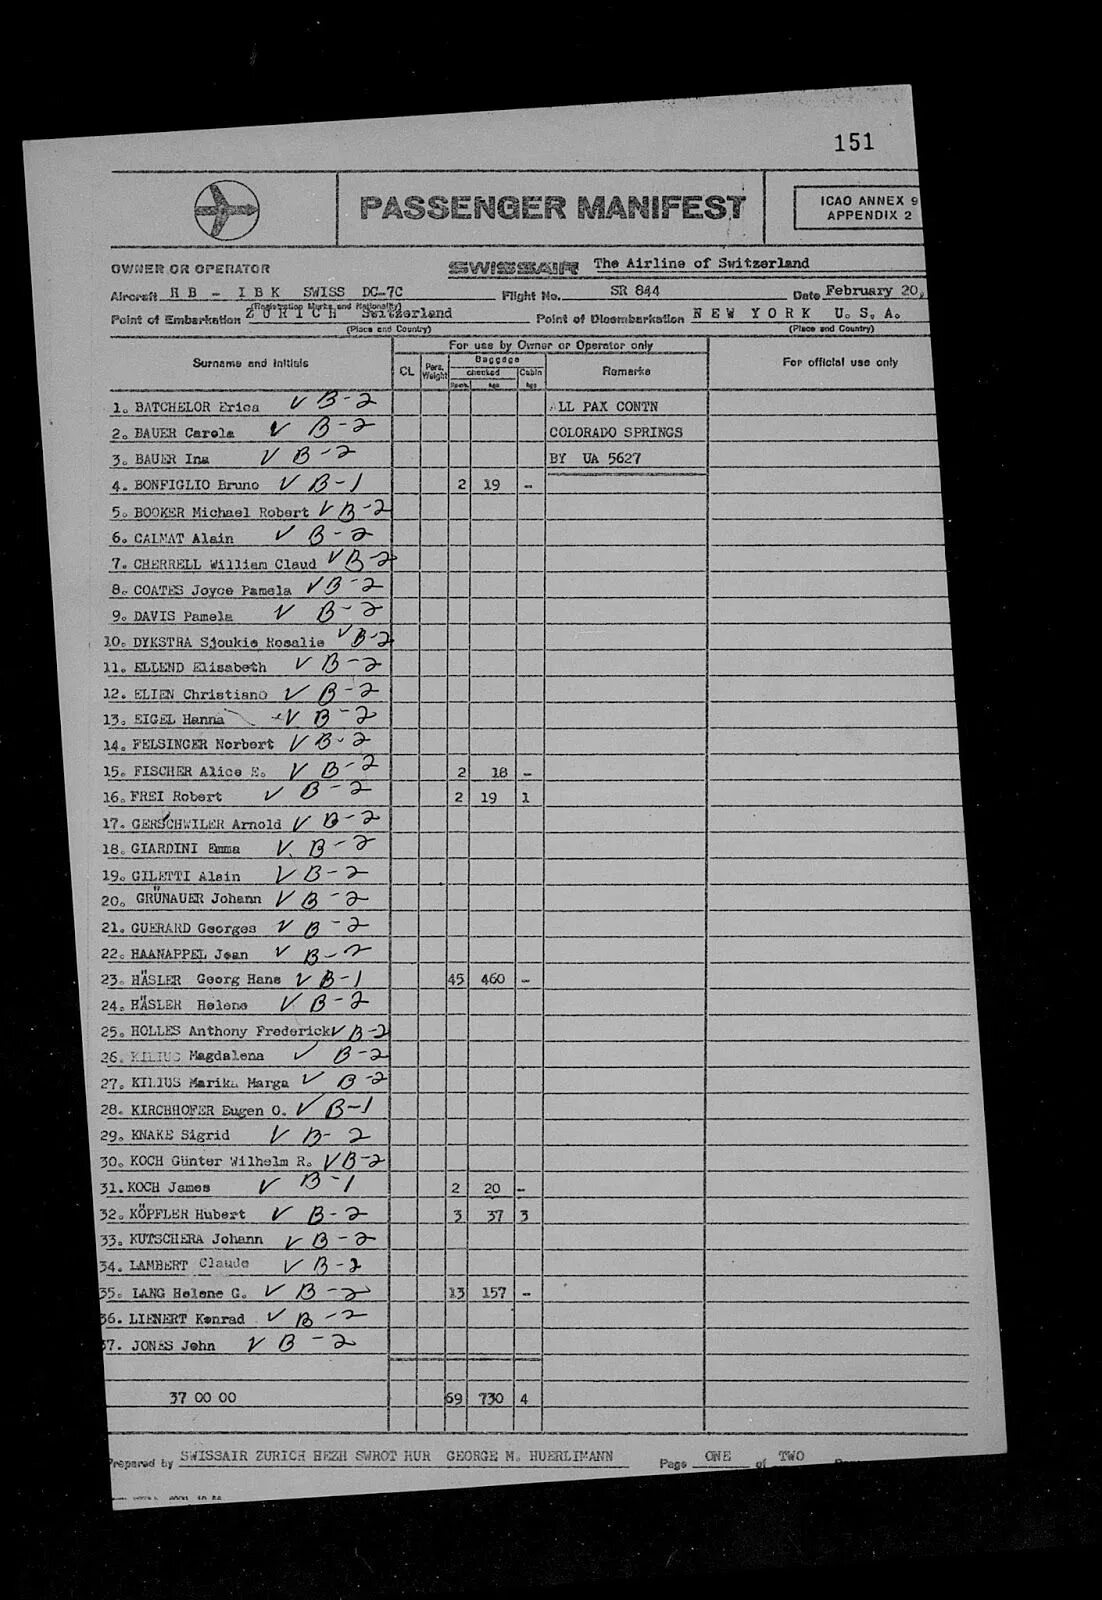 151
PASSENGER MANIFEST
ICAO ANNEX 9
APPENDIX 2
OWNER OR OPERATOR SWISSAIR The Airline of Switzerland
Aircraft HB - IBK SWISS DC-7C Flight No. SR 844 Date February 20,
(Registration Marks and Nationality)
Point of Embarkation ZURICH Switzerland Point of Disembarkation NEW YORK U.S.A.
(Place and Country) (Place and Country)
Surname and Initials For use by Owner or Operator only For official use only
CL Pers. Weight Baggage checked Cabin Remarks
1. BATCHELOR Erica V B-2 ALL PAX CONTN
2. BAUER Carola V B-2 COLORADO SPRINGS
3. BAUER Ina V B-2 BY UA 5627
4. BONFIGLIO Bruno V B-1 2 19 -
5. BOOKER Michael Robert V B-2
6. CALMAT Alain V B-2
7. CHERRELL William Claud V B-2
8. COATES Joyce Pamela V B-2
9. DAVIS Pamela V B-2
10. DYKSTRA Sjoukie Rosalie V B-2
11. ELLEND Elisabeth V B-2
12. ELIEN Christiano V B-2
13. EIGEL Hanna V B-2
14. FELSINGER Norbert V B-2
15. FISCHER Alice E. V B-2 2 18 -
16. FREI Robert V B-2 2 19 1
17. GERSCHWILER Arnold V B-2
18. GIARDINI Emma V B-2
19. GILETTI Alain V B-2
20. GRÜNAUER Johann V B-2
21. GUERARD Georges V B-2
22. HAANAPPEL Joan V B-2
23. HÄSLER Georg Hans V B-1 45 460 -
24. HÄSLER Helene V B-2
25. HOLLES Anthony Frederick V B-2
26. KILIUS Magdalena V B-2
27. KILIUS Marika Marga V B-2
28. KIRCHHOFER Eugen O. V B-1
29. KNAKE Sigrid V B-2
30. KOCH Günter Wilhelm R. V B-2
31. KOCH James V B-1 2 20 -
32. KÖPFLER Hubert V B-2 3 37 3
33. KUTSCHERA Johann V B-2
34. LAMBERT Claude V B-2
35. LANG Helene G. V B-2 13 157 -
36. LIENERT Konrad V B-2
37. JONES John V B-2
37 00 00 69 730 4
Prepared by SWISSAIR ZURICH HEZH SWROT HUR GEORGE M. HUERLIMANN Page ONE of TWO